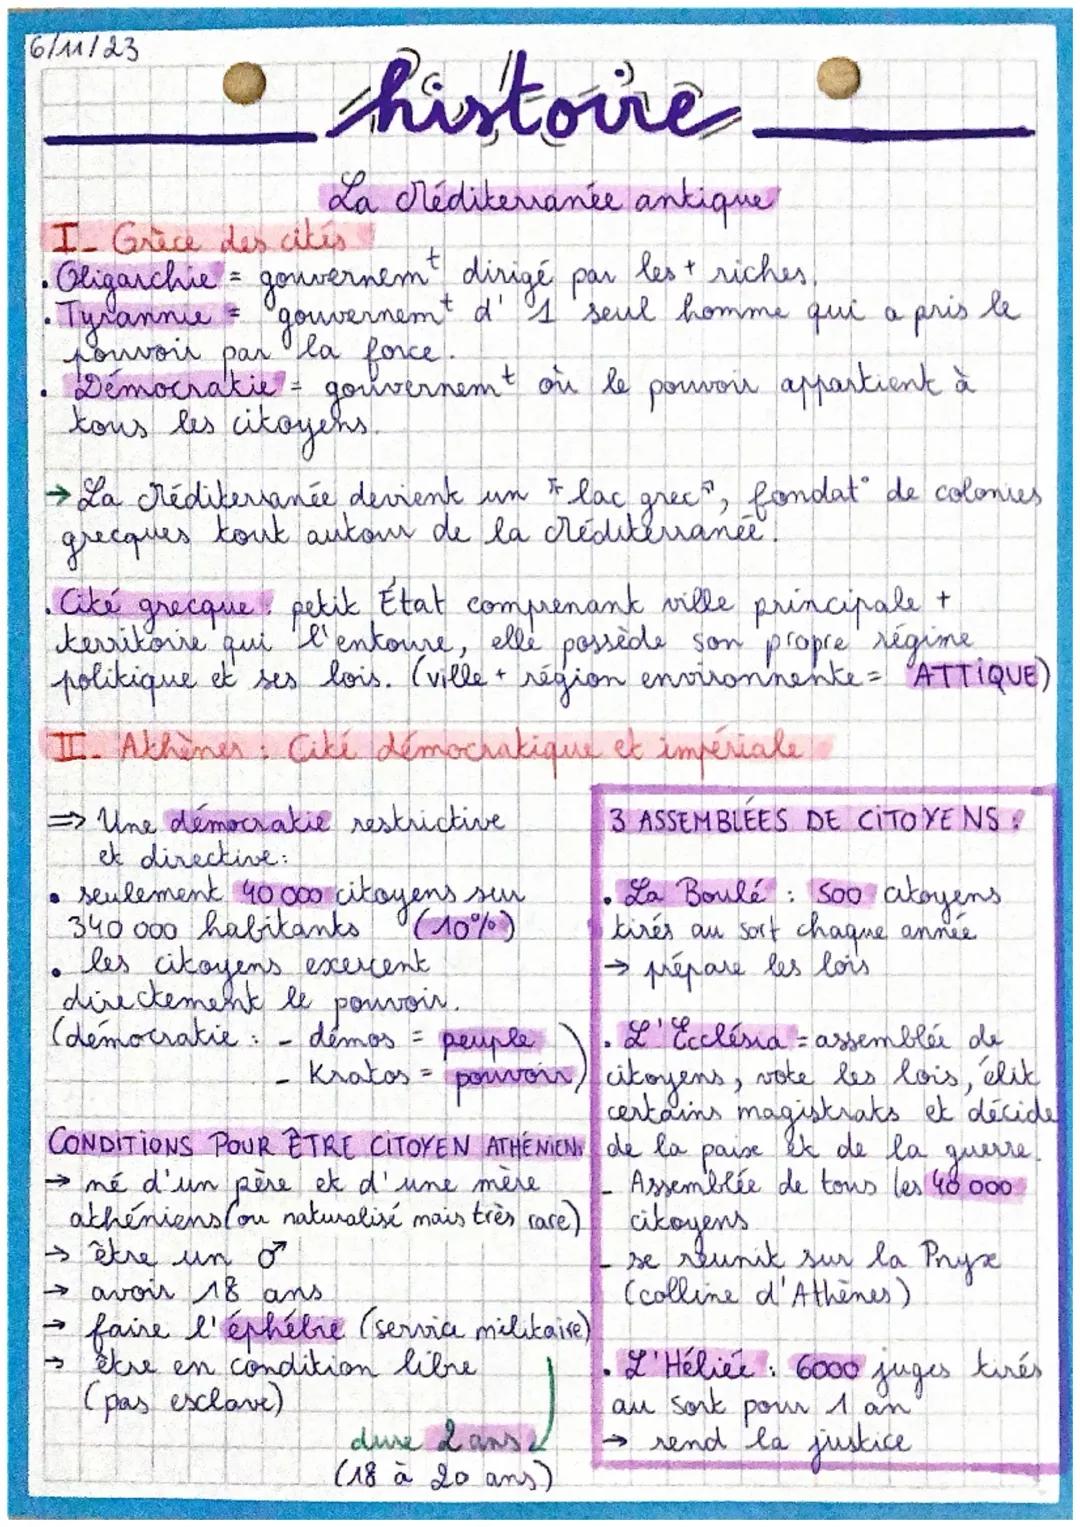 6/11/23
histoire
La Méditerranée antique
I_ Grèce des cités
. Oligarchie = gouvernemᵗ dirigé par les + riches.
. Tyrannie = gouvernemᵗ d' 1 seul homme qui a pris le
pouvoir par la force.
. Démocratie = gouvernemᵗ où le pouvoir appartient à
tous les citoyens.
→ La Méditerranée devient un "lac grec", fondat° de colonies
grecques tout autour de la Méditerranée.
. Cité grecque : petit État comprenant ville principale +
territoire qui l'entoure, elle possède son propre régime
politique et ses lois. (ville + région environnente = ATTIQUE)
II_ Athènes : Cité démocratique et impériale
⇒ Une démocratie restrictive
et directive :
• seulement 40 000 citoyens sur
340 000 habitants (10%)
• les citoyens exercent
directement le pouvoir.
(démocratie : - démos = peuple
- Kratos = pouvoir)
CONDITIONS POUR ÊTRE CITOYEN ATHÉNIEN:
→ né d'un père et d'une mère
athéniens (ou naturalisé mais très rare)
→ être un ♂
→ avoir 18 ans
→ faire l'éphébie (service militaire)
→ être en condition libre
(pas esclave)
dure 2 ans
(18 à 20 ans)
3 ASSEMBLÉES DE CITOYENS :
. La Boulé : 500 citoyens
tirés au sort chaque année
→ prépare les lois
. L'Ecclésia = assemblée de
citoyens, vote les lois, élit
certains magistrats et décide
de la paix et de la guerre.
- Assemblée de tous les 40 000
citoyens
- se réunit sur la Pnyx
(colline d'Athènes)
. L'Héliée : 6000 juges tirés
au sort pour 1 an
→ rend la justice